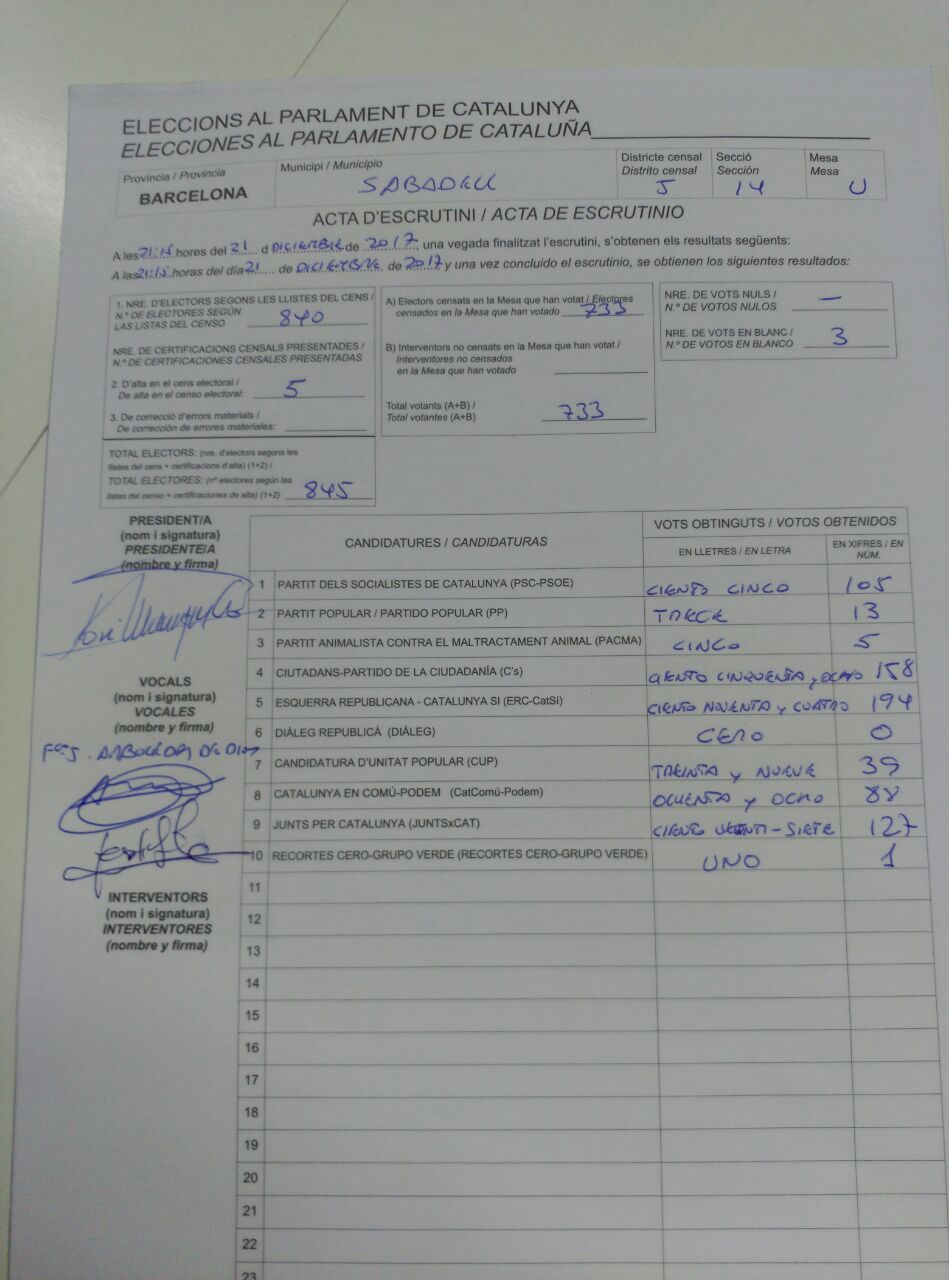 ELECCIONS AL PARLAMENT DE CATALUNYA
ELECCIONES AL PARLAMENTO DE CATALUÑA
Provincia / Provincia
BARCELONA
Municipi / Municipio
SABADELL
Districte censal
Distrito censal
5
Secció
Sección
14
Mesa
Mesa
U
ACTA D'ESCRUTINI / ACTA DE ESCRUTINIO
A les 21:15 hores del 21 d DICIEMBRE de 2017, una vegada finalitzat l'escrutini, s'obtenen els resultats següents:
A las 21:15 horas del día 21 de DICIEMBRE de 2017 y una vez concluido el escrutinio, se obtienen los siguientes resultados:
1. NRE. D'ELECTORS SEGONS LES LLISTES DEL CENS /
N.º DE ELECTORES SEGÚN
LAS LISTAS DEL CENSO 840
NRE. DE CERTIFICACIONS CENSALS PRESENTADES /
N.º DE CERTIFICACIONES CENSALES PRESENTADAS
2. D'alta en el cens electoral /
De alta en el censo electoral: 5
3. De correcció d'errors materials /
De corrección de errores materiales:
TOTAL ELECTORS: (nre. d'electors segons les
llistes del cens + certificacions d'alta) (1+2) /
TOTAL ELECTORES: (nº electores según las
listas del censo + certificaciones de alta) (1+2) 845
A) Electors censats en la Mesa que han votat / Electores
censados en la Mesa que han votado 733
B) Interventors no censats en la Mesa que han votat /
Interventores no censados
en la Mesa que han votado
Total votants (A+B) /
Total votantes (A+B) 733
NRE. DE VOTS NULS /
N.º DE VOTOS NULOS —
NRE. DE VOTS EN BLANC /
N.º DE VOTOS EN BLANCO 3
PRESIDENT/A
(nom i signatura)
PRESIDENTE/A
(nombre y firma)
VOCALS
(nom i signatura)
VOCALES
(nombre y firma)
INTERVENTORS
(nom i signatura)
INTERVENTORES
(nombre y firma)
CANDIDATURES / CANDIDATURAS
VOTS OBTINGUTS / VOTOS OBTENIDOS
EN LLETRES / EN LETRA
EN XIFRES / EN NÚM.
1 PARTIT DELS SOCIALISTES DE CATALUNYA (PSC-PSOE) CIENTO CINCO 105
2 PARTIT POPULAR / PARTIDO POPULAR (PP) TRECE 13
3 PARTIT ANIMALISTA CONTRA EL MALTRACTAMENT ANIMAL (PACMA) CINCO 5
4 CIUTADANS-PARTIDO DE LA CIUDADANÍA (C's) CIENTO CINQUENTA y OCHO 158
5 ESQUERRA REPUBLICANA - CATALUNYA SI (ERC-CatSí) CIENTO NOVENTA y CUATRO 194
6 DIÀLEG REPUBLICÀ (DIÀLEG) CERO 0
7 CANDIDATURA D'UNITAT POPULAR (CUP) TREINTA y NUEVE 39
8 CATALUNYA EN COMÚ-PODEM (CatComú-Podem) OCHENTA y OCHO 88
9 JUNTS PER CATALUNYA (JUNTSxCAT) CIENTO VEINTI-SIETE 127
10 RECORTES CERO-GRUPO VERDE (RECORTES CERO-GRUPO VERDE) UNO 1
11
12
13
14
15
16
17
18
19
20
21
22
23